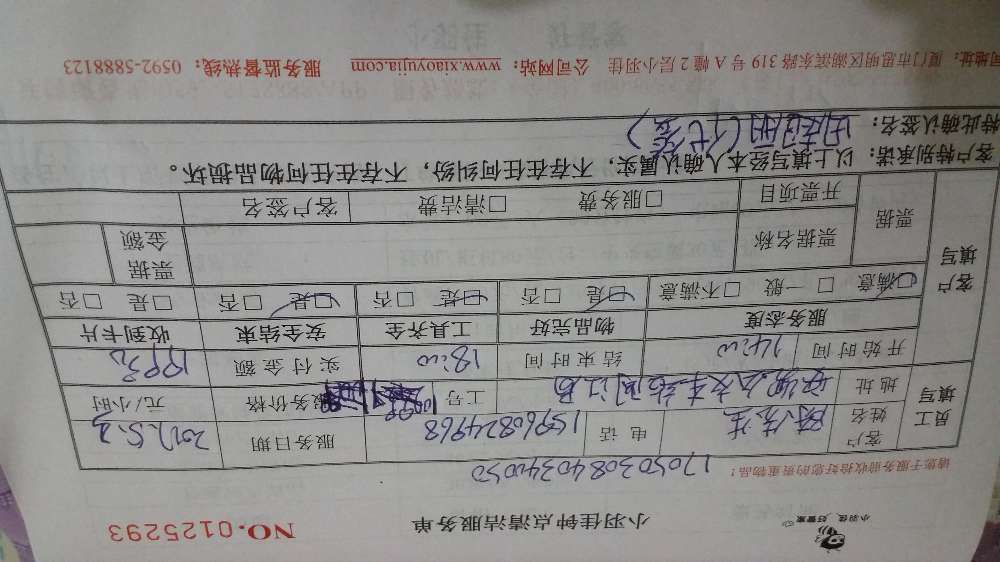 小羽佳 好管家
小羽佳钟点清洁服务单
NO.0125293
请您于服务前收拾好您的贵重物品！
1705030840340050
员工填写
客户姓名 陈先生 电话 15960824968 服务日期 2017.5.3
地址 工号 服务价格 元/小时
开始时间 14:00 结束时间 18:00 实付金额 199元
客户填写
服务态度 物品完好 工具齐全 安全结束 收到卡片
☑满意 □一般 □不满意 ☑是 □否 ☑是 □否 ☑是 □否 □是 □否
票据 票据名称 票据金额
开票项目 □服务费 □清洁费 客户签名
客户特别承诺：以上填写经本人确认属实，不存在任何纠纷，不存在任何物品损坏。
特此确认签名：（代签）
司地址：厦门市思明区湖滨东路319号A幢2层小羽佳 公司网站：www.xiaoyujia.com 服务监督热线：0592-5888123